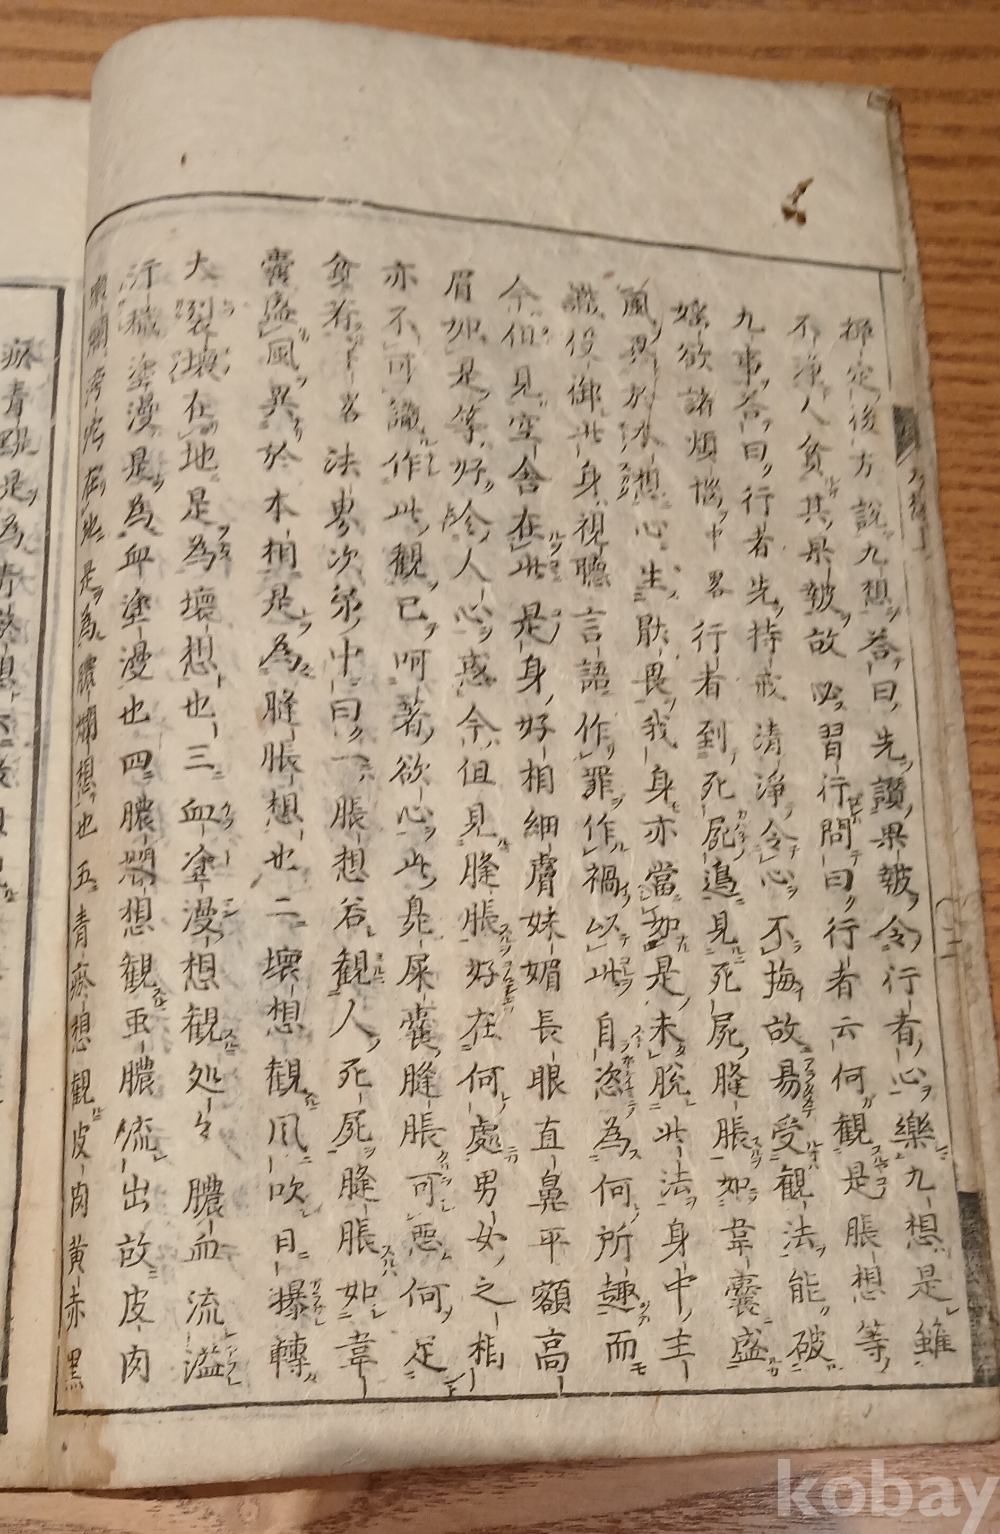 擇定後方說九想答曰先讚果報令行者心樂九想是雖
不淨人貪其果報故必習行問曰行者云何觀是脹想等
九事答曰行者先持戒清淨令心不悔故易受觀法能破
婬欲諸煩惱中畧行者到死屍邊見死屍膖脹如韋囊盛
風異於本想心生厭畏我身亦當如是未脫此法身中主
識役御此身視聽言語作罪作禍以此自恣為何所趣而
今但見空舍在此是身好相細膚姝媚長眼直鼻平額高
眉如是等好令人心惑今但見膖脹好在何處男女之相
亦不可識作此觀已呵著欲心此臭屎囊膖脹可惡何足
貪者畧法界次第中曰一脹想谷觀人死屍膖脹如韋
囊盛風異於本相是為膖脹想也二壞想觀風吹日曝轉
大裂壞在地是為壞想也三血塗漫想觀処々膿血流溢
汙穢塗漫是為血塗漫也四膿想觀虫膿流出故皮肉
爛在地是為膿爛想也五青瘀想觀皮肉黃赤黑
瘀青是為青瘀想
kobay